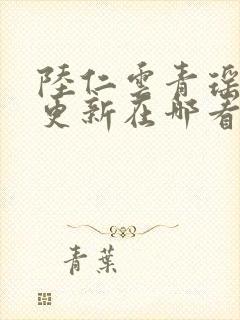 陸仁雲青瑶
更新在哪看
青葉